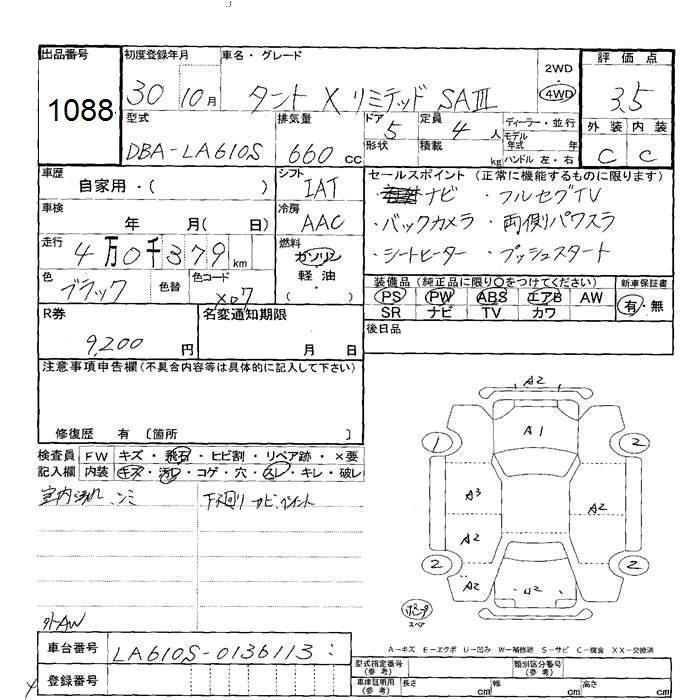 出品番号
1088
初度登録年月
30 10月
車名・グレード
タント X リミテッド SAⅢ
2WD
・
4WD
評価点
3.5
外装 内装
C C
型式
DBA-LA610S
排気量
660 cc
ドア 5
形状
定員 4 人
積載 kg
ディーラー・並行
モデル
年式 年
ハンドル 左・右
車歴
自家用・( )
シフト
IAT
セールスポイント (正常に機能するものに限ります)
ナビ ・フルセグTV
・バックカメラ ・両側パワスラ
・シートヒーター ・プッシュスタート
車検
年 月( 日)
冷房
AAC
走行
4万0千379 km
燃料
ガソリン
軽油
( )
色
ブラック
色替
色コード
X07
装備品 (純正品に限り○をつけてください)
PS PW ABS エアB AW
SR ナビ TV カワ
新車保証書
有・無
R券
9,200 円
名変通知期限
月 日
後日品
注意事項申告欄 (不具合内容等は具体的に記入して下さい)
修復歴 有 〔箇所 〕
検査員
記入欄
FW キズ・飛石・ヒビ割・リペア跡・×要
内装 キズ・汚レ・コゲ・穴・スレ・キレ・破レ
室内汚れ、シミ
下廻り サビ、ペイント
外AW
A2
A1
1
2
A3
A2
A2
2
2
A2
A2
スペア
A-キズ E-エクボ U-凹み W-補修跡 S-サビ C-腐食 XX-交換済
車台番号
LA610S-0136113
登録番号
型式指定番号
(参考)
類別区分番号
(参考)
車体証明用
(参考)
長さ cm 幅 cm 高さ cm